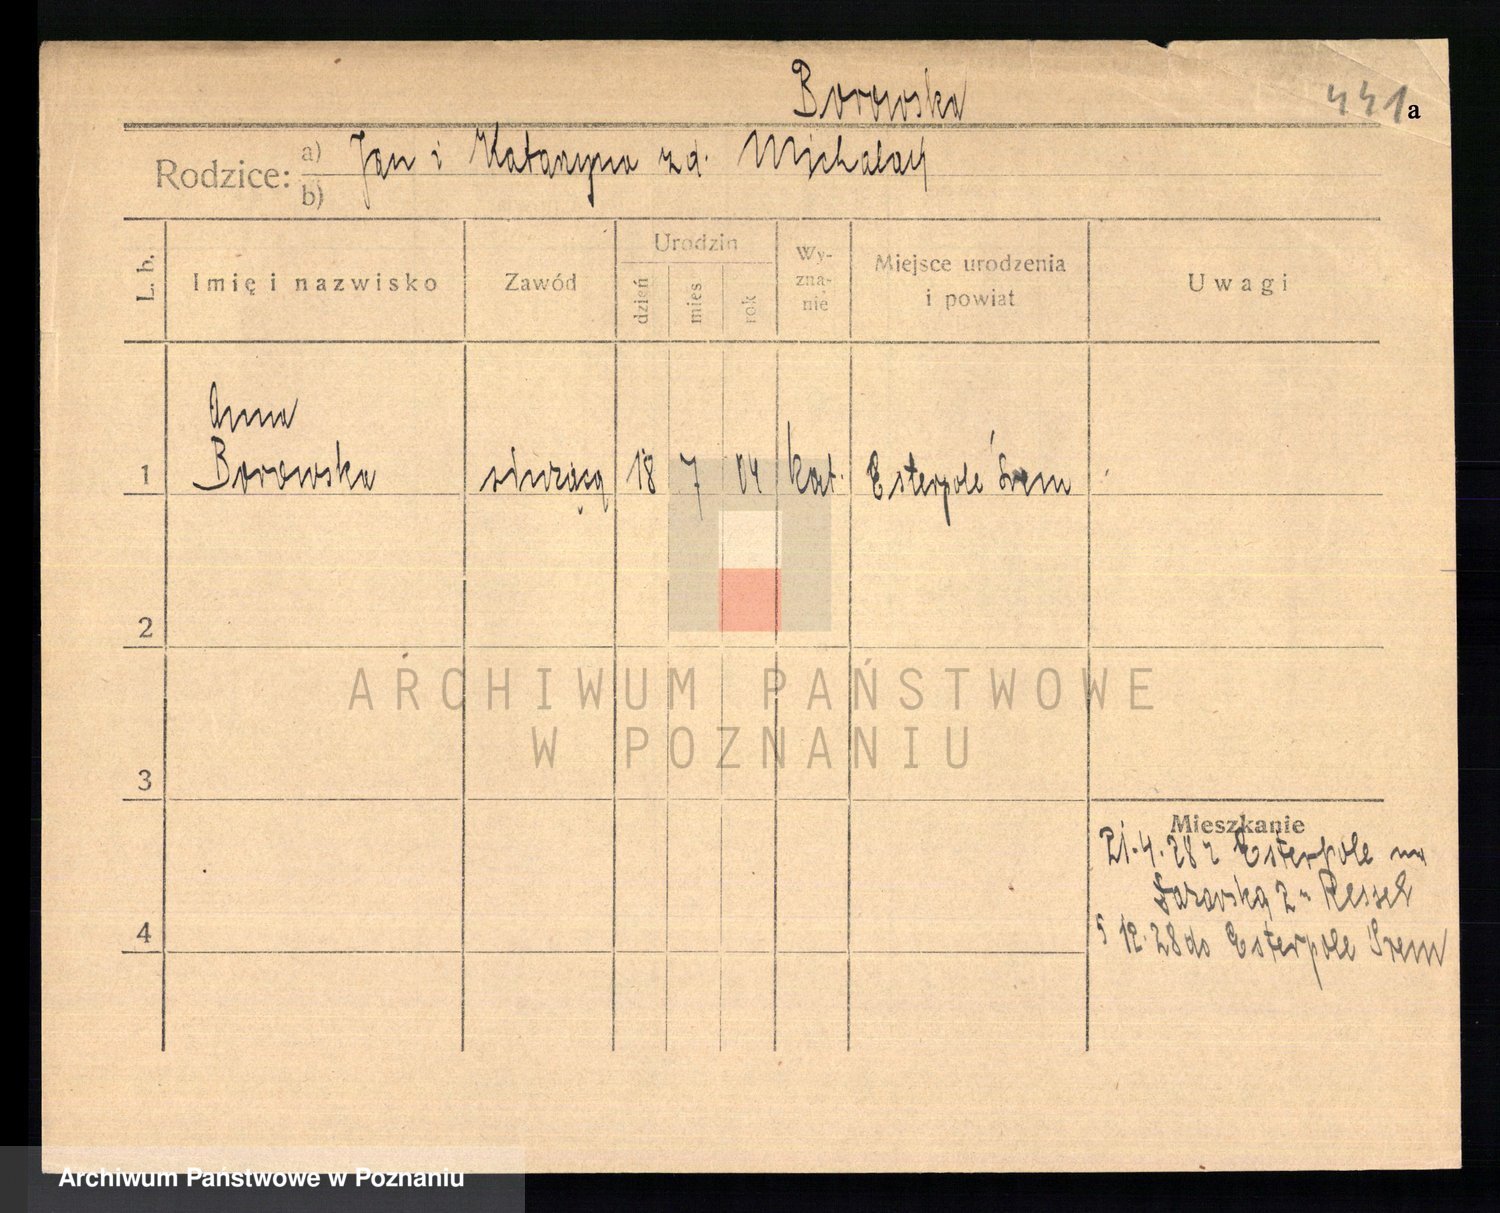 Borowska
441a
Rodzice: a) Jan i Katarzyna z d. Michalak
b)
L. b. Imię i nazwisko Zawód Urodzin dzień mies rok Wyznanie Miejsce urodzenia i powiat Uwagi
Anna
1 Borowska służąca 18 7 04 kat. Esterpole Śrem
2
ARCHIWUM PAŃSTWOWE
W POZNANIU
3
Mieszkanie
21.4.28 z Esterpole na
2
4
5 12.28 do Esterpole Śrem
Archiwum Państwowe w Poznaniu